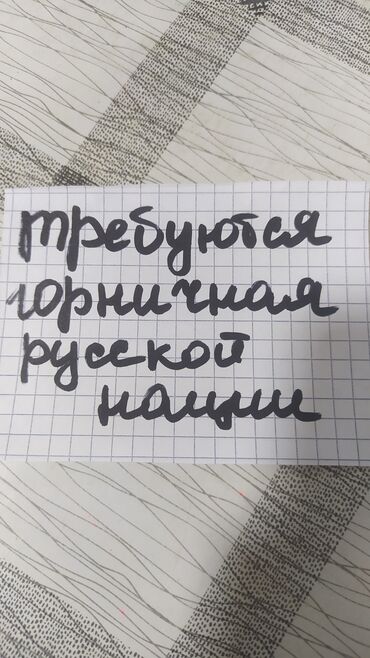 требуются
горничная
русской
нации